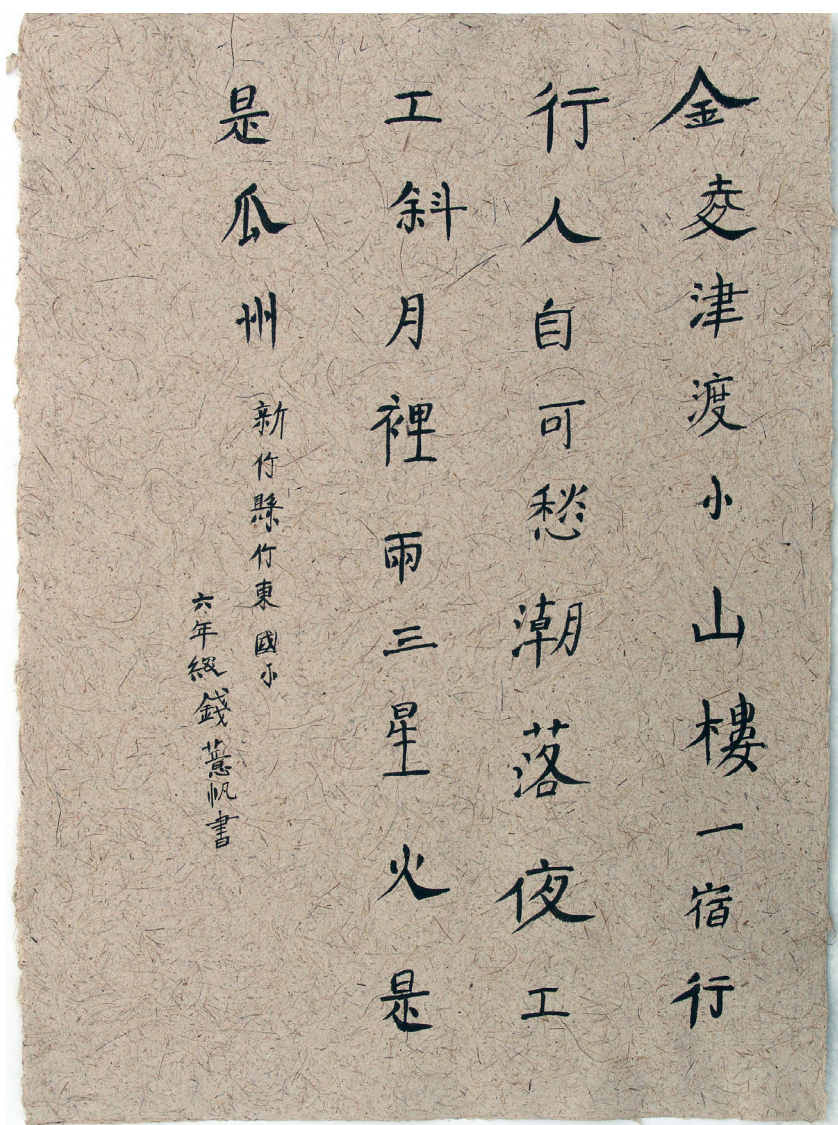 金夌津渡小山樓一宿行
行人自可愁潮落夜工
工斜月裡兩三星火是
是瓜州
新竹縣竹東國小
六年級錢薏帆書